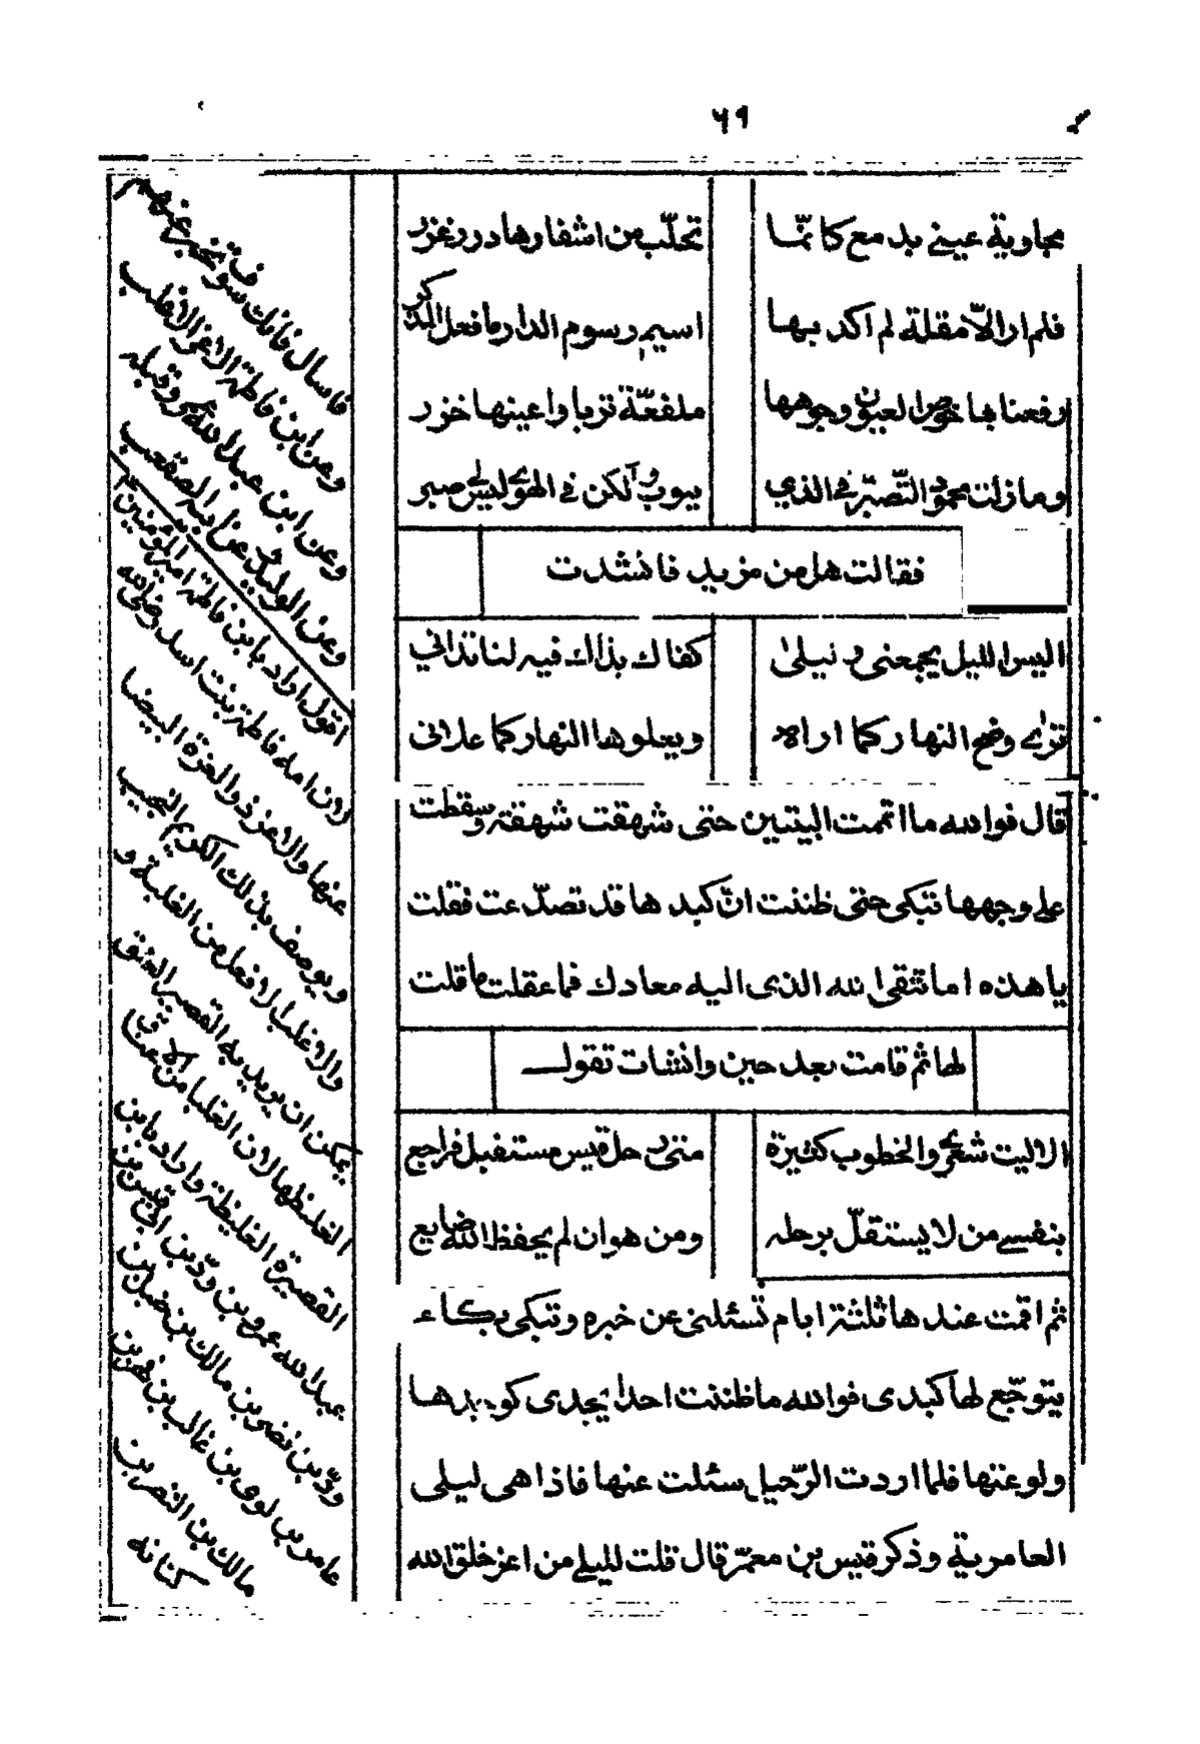 ٦٩
مجاوبة عيني بدمع كانّما تحلّب من اشفارها درر غزر
فلم ار الّا مقلة لم اكد بها اسيم رسوم الدار ما فعل الذكر
رفعنا بها خوص العيون وجوهها ملفعّة تربا واعينها خزر
وما زلت محمود التّصبّر في الذي ينوب ولكن في الهوى ليس لي صبر
فقالت هل من مزيد فانشدت
اليس الليل يجمعني و ليلى كفاك بذاك فيه لنا تداني
ترى وضح النهار كما اراه ويعلوها النهار كما علاني
قال فوالله ما اتممت البيتين حتى شهقت شهقة وسقطت
على وجهها تبكى حتى ظننت انّ كبدها قد تصدّعت فقلت
يا هذه اما تتقى الله الذى اليه معادك فما عقلت ما قلت
لها ثم قامت بعد حين وانشات تقول
الا ليت شعري والخطوب كثيرة متى رحل قيس مستقبل فراجع
بنفسي من لا يستقلّ برحله ومن هو ان لم يحفظ الله ضايع
ثم اقمت عندها ثلثة ايام تسئلنى عن خبره وتبكى بكاء
يتوجّع لها كبدى فوالله ما ظننت احدا يجدى كوجدها
ولوعتها فلما اردت الرّحيل سئلت عنها فاذا هى ليلى
العامرية وذكر قيس بن معمّر قال قلت لليلي من اعز خلق الله
فاسال فانك سوف تخبر عنهم
وعن ابن فاطمة الاغر الاغلب
وعن ابن عبد الله عمرو قبله
وعن الوليد وعن ابيه الصقعب
اقول اراد بابن فاطمة امير المؤمنين ع
لان امه فاطمة بنت اسد رضي الله
عنها والاغر ذو الغرة البيضا
ويوصف بذلك الكريم النجيب
والاغلب الافعل من الغلبة و
يمكن ان يريد به القصير العنق
الغليظها لان الغلبا من الاعناق
القصيرة الغليظة واراد بابن
عبد الله عمرو بن ودّ بن ابى قيس بن
ودّ بن نضر بن مالك بن حسل بن
عامر بن لوى بن غالب بن فهر بن
مالك بن النضر بن
كنانه